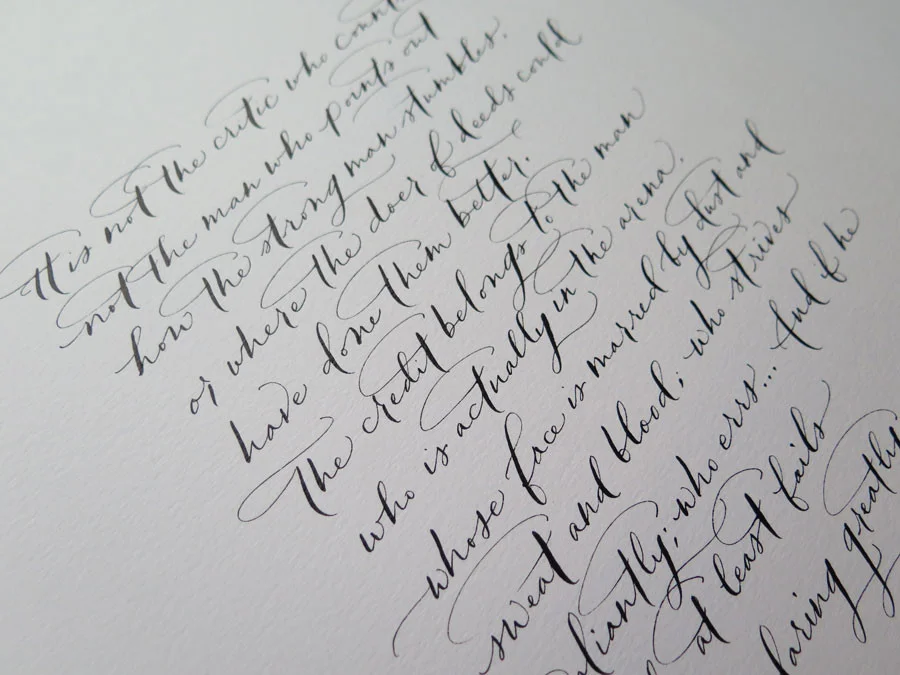 It is not the critic who count
not the man who points out
how the strong man stumbles.
or where the doer of deeds could
have done them better.
The credit belongs to the man
who is actually in the arena.
whose face is marred by dust and
sweat and blood; who strives
liantly; who errs... And if he
at least fails
daring greatly